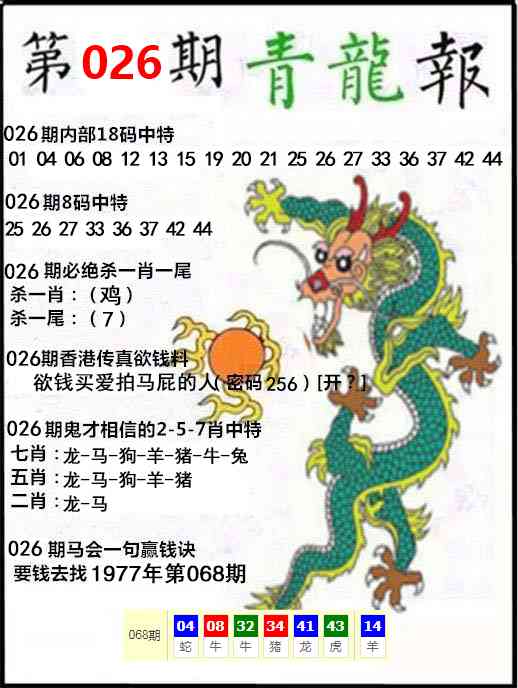 第026期青龍報
026期内部18码中特
01 04 06 08 12 13 15 19 20 21 25 26 27 33 36 37 42 44
026期8码中特
25 26 27 33 36 37 42 44
026期必绝杀一肖一尾
杀一肖：(鸡)
杀一尾：(7)
026期香港传真欲钱料
欲钱买爱拍马屁的人(密码256)[开?]
026期鬼才相信的2-5-7肖中特
七肖：龙-马-狗-羊-猪-牛-兔
五肖：龙-马-狗-羊-猪
二肖：龙-马
026期马会一句赢钱诀
要钱去找1977年第068期
068期 04 08 32 34 41 43 14
蛇 牛 牛 猪 龙 虎 羊